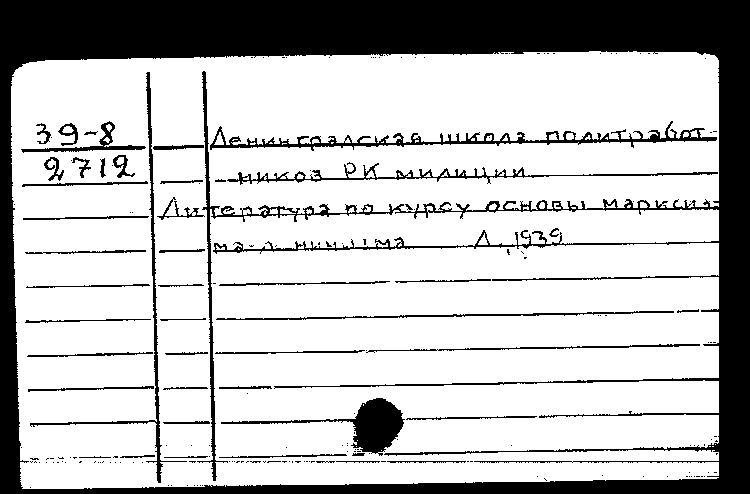 39-8
2712
Ленинградская школа политработ-
ников РК милиции.
Литература по курсу основы марксиз-
ма-ленинизма Л., 1939